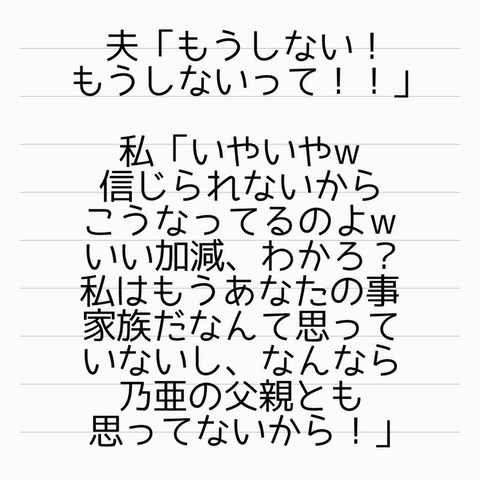 夫「もうしない！
もうしないって！！」
私「いやいやw
信じられないから
こうなってるのよw
いい加減、わかろ？
私はもうあなたの事
家族だなんて思って
いないし、なんなら
乃亜の父親とも
思ってないから！」